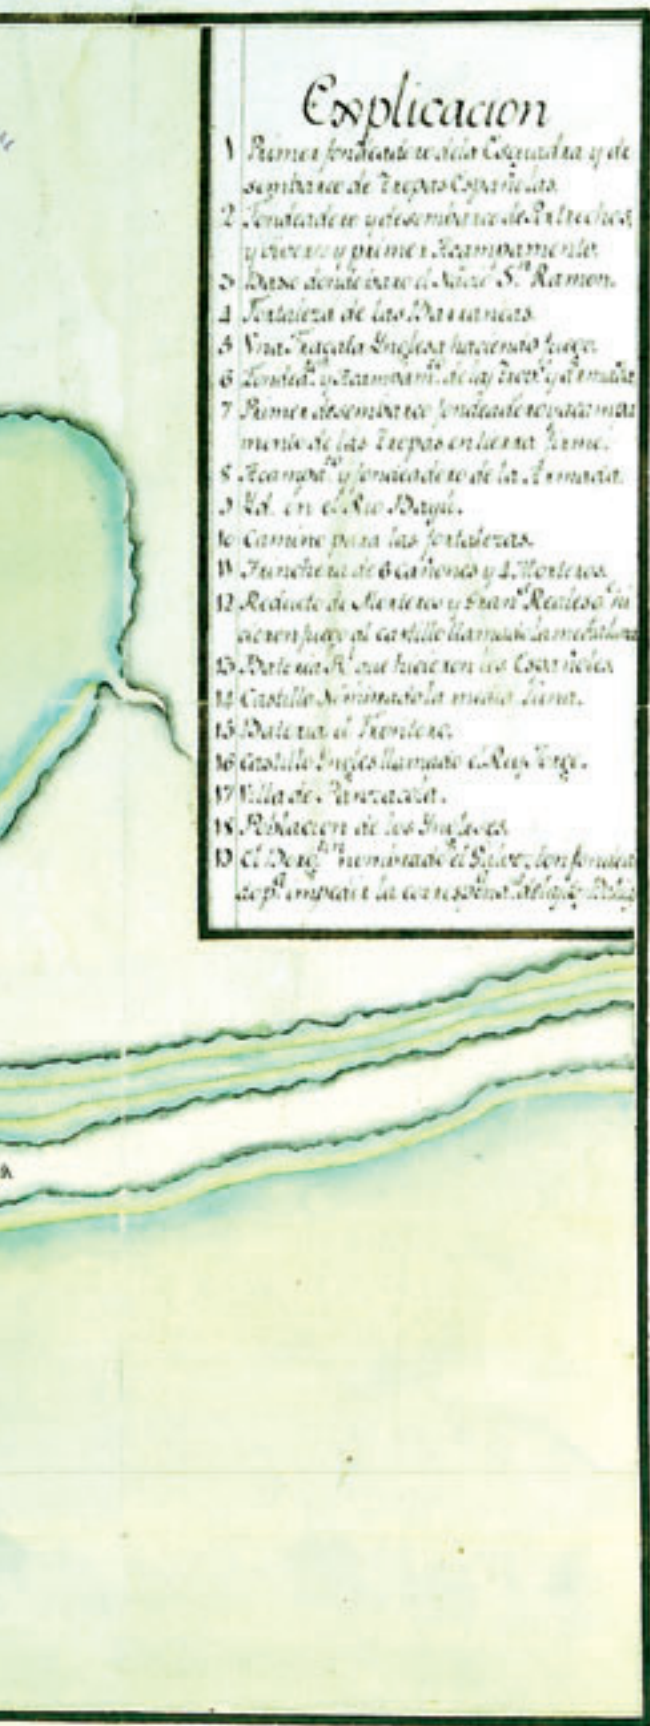 Explicacion
1 Primer fondeadero dela Esquadra y de
sembarco de Tropas Españolas.
2 Fondeadero y desembarco de Pertrechos,
y viveres y primer Acampamento.
3 donde baro el Navio S.n Ramon.
4 Fortaleza de las Barrancas.
5 Vna Fragata Inglesa haciendo fuego.
6 y Acampam.to de las y Armada
7 Primer desembarco fondeadero y acampa
mento de las Tropas en tierra firme.
8 Acampa.to y fondeadero de la Armada.
9 Yd. en el Rio Bayú.
10 Camino para las fortalezas.
11 Trinchera de 6 cañones y 4 Morteros.
12 Reducto de Morteros y q.e hi
cieron fuego al castillo llamado la media luna
13 Bateria que hicieron los Españoles.
14 Castillo nominado la media luna.
15 Bateria el
16 Castillo Ingles llamado el Rey Jorge.
17 Villa de Panzacola.
18 Poblacion de los Ingleses.
19 El Berg.tin nombrado el Galvez ton fondea
do p.a impedir la